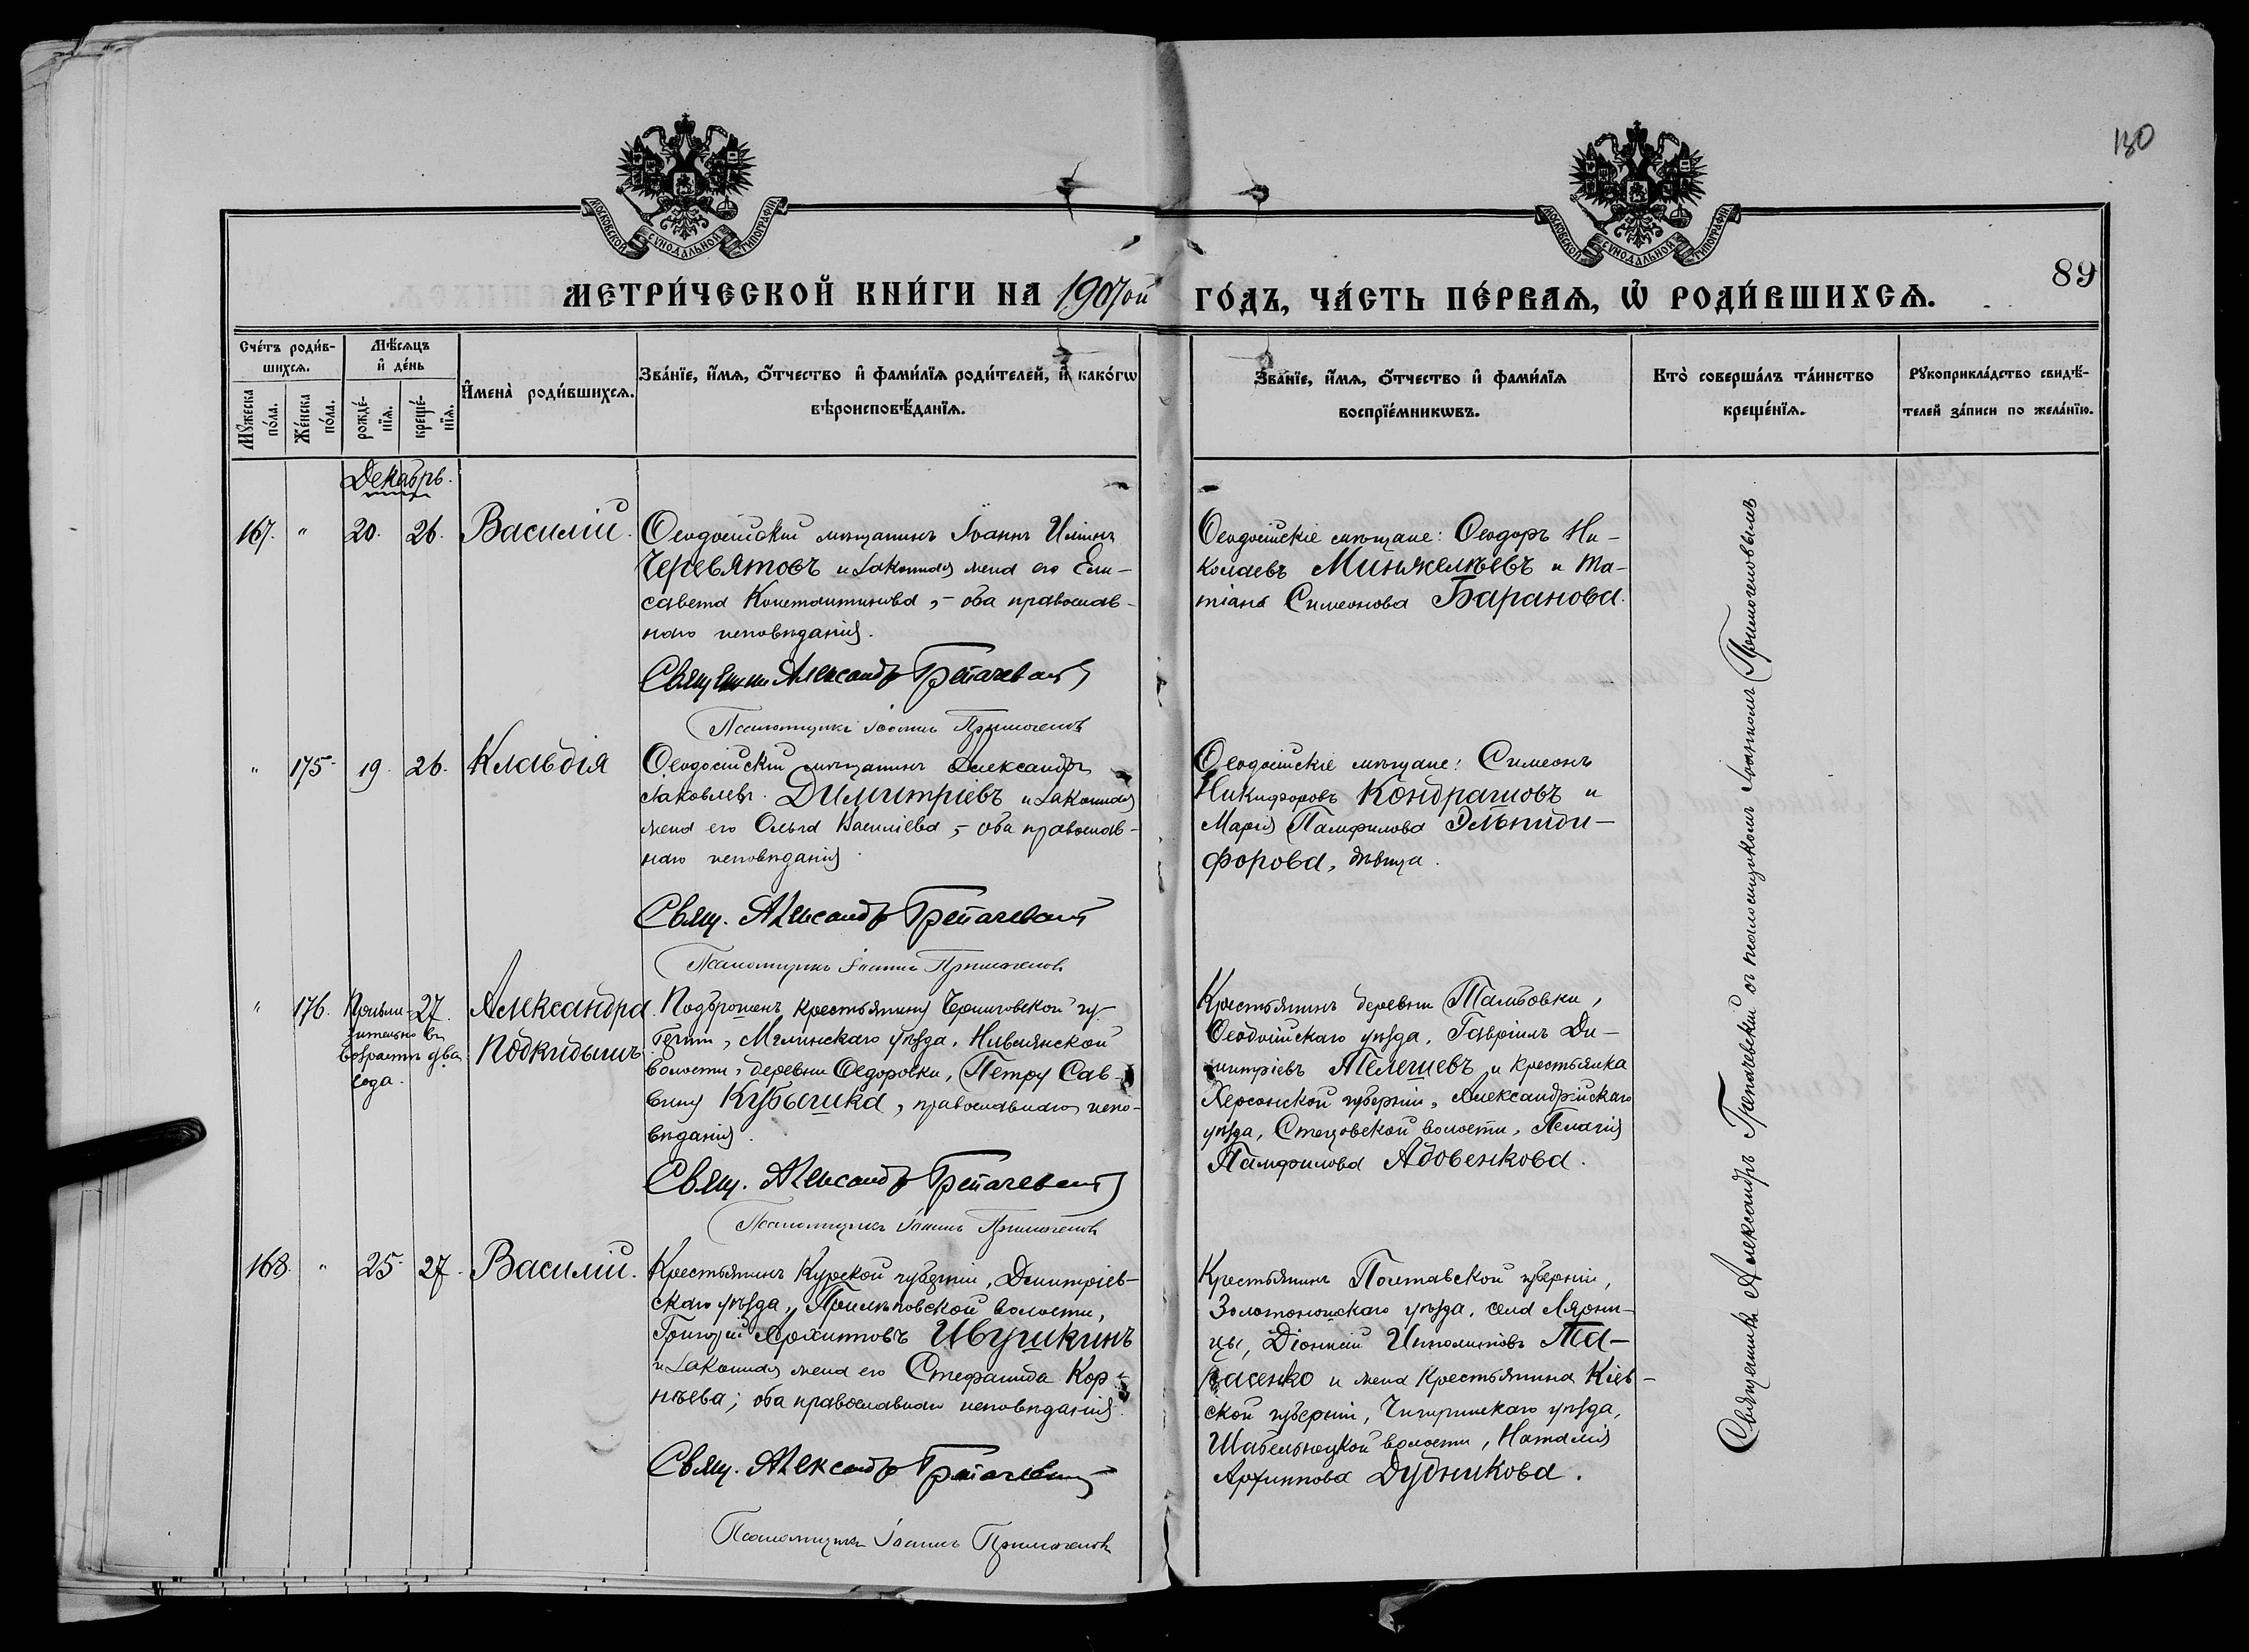 130
МОСКОВСКОЙ СѴНОДАЛЬНОЙ ТИПОГРАФІИ
МОСКОВСКОЙ СѴНОДАЛЬНОЙ ТИПОГРАФІИ
89
МЕТРИ́ЧЕСКОЙ КНИ́ГИ НА 1907ой ГО́ДЪ, ЧА́СТЬ ПЕ́РВАѦ, Ѡ҆ РОДИ́ВШИХСѦ.
Сче́тъ роди́в-
шихсѧ.
Мѣ́сѧцъ
и҆ де́нь
Мꙋ́жеска по́ла.
Же́нска по́ла.
рожде́-
нїѧ.
креще́-
нїѧ.
И҆мена̀ роди́вшихсѧ.
Зва́нїе, и҆́мѧ, ѻ҆́тчество и҆ фами́лїѧ роди́телей, и҆ како́гѡ
вѣроисповѣ́данїѧ.
Зва́нїе, и҆́мѧ, ѻ҆́тчество и҆ фами́лїѧ
воспрїе́мникѡвъ.
Кто̀ соверша́лъ та́инство
креще́нїѧ.
Рꙋкоприкла́дство свидѣ́-
телей за́писи по жела́нїю.
Декабрь.
167. " 20. 26. Василій.
Ѳеодосійскій мѣщанинъ Іоаннъ Илiинъ
Черевятовъ и законная жена его Ели-
савета Константинова, - оба православ-
наго исповѣданія.
Священникъ Александръ Трепачевскій
Псаломщикъ Іоаннъ Примогеновъ
Ѳеодосійскіе мѣщане: Ѳеодоръ Ни-
колаевъ Минжелѣевъ и Та-
тіана Симеонова Баранова.
" 175. 19. 26. Клавдія
Ѳеодосійскій мѣщанинъ Александръ
Яковлевъ Димитріевъ и законная
жена его Ольга Василіева, - оба православ-
наго исповѣданія.
Свящ. Александръ Трепачевскій
Псаломщикъ Іоаннъ Примогеновъ
Ѳеодосійскіе мѣщане: Симеонъ
Никифоровъ Кондрашовъ и
Марія Памфилова Эльпиди-
форова, дѣвица.
" 176. Прибли- 27.
зительно въ
возрастѣ два
года.
Александра
Подкидышъ
Подброшенъ крестьянину Черниговской гу-
берніи, Мглинскаго уѣзда, Нивлянской
волости, деревни Ѳедоровки, Петру Сав-
вину Кубышка, православнаго испо-
вѣданія.
Свящ. Александръ Трепачевскій
Псаломщикъ Іоаннъ Примогеновъ
Крестьянинъ деревни Тамбовки,
Ѳеодосійскаго уѣзда, Гавріилъ Ди-
митріевъ Телешевъ и крестьянка
Херсонской губерніи, Александрійскаго
уѣзда, Стецовской волости, Пелагія
Памфилова Адовенкова.
168. " 25. 27. Василій.
Крестьянинъ Курской губерніи, Дмитріев-
скаго уѣзда, волости,
Григорій Архиповъ Ивушкинъ
и законная жена его Стефанида Кор-
нѣева; оба православнаго исповѣданія.
Свящ. Александръ Трепачевскій
Псаломщикъ Іоаннъ Примогеновъ
Крестьянинъ Полтавской губерніи,
Золотоношскаго уѣзда, села
Діонисій Ипполитовъ Та-
расенко и жена крестьянина Кіев-
ской губерніи, Чигиринскаго уѣзда,
Шабельницкой волости, Наталія
Архиппова Дубникова.
Священникъ Александръ Трепачевскій съ псаломщикомъ Іоанномъ Примогеновымъ